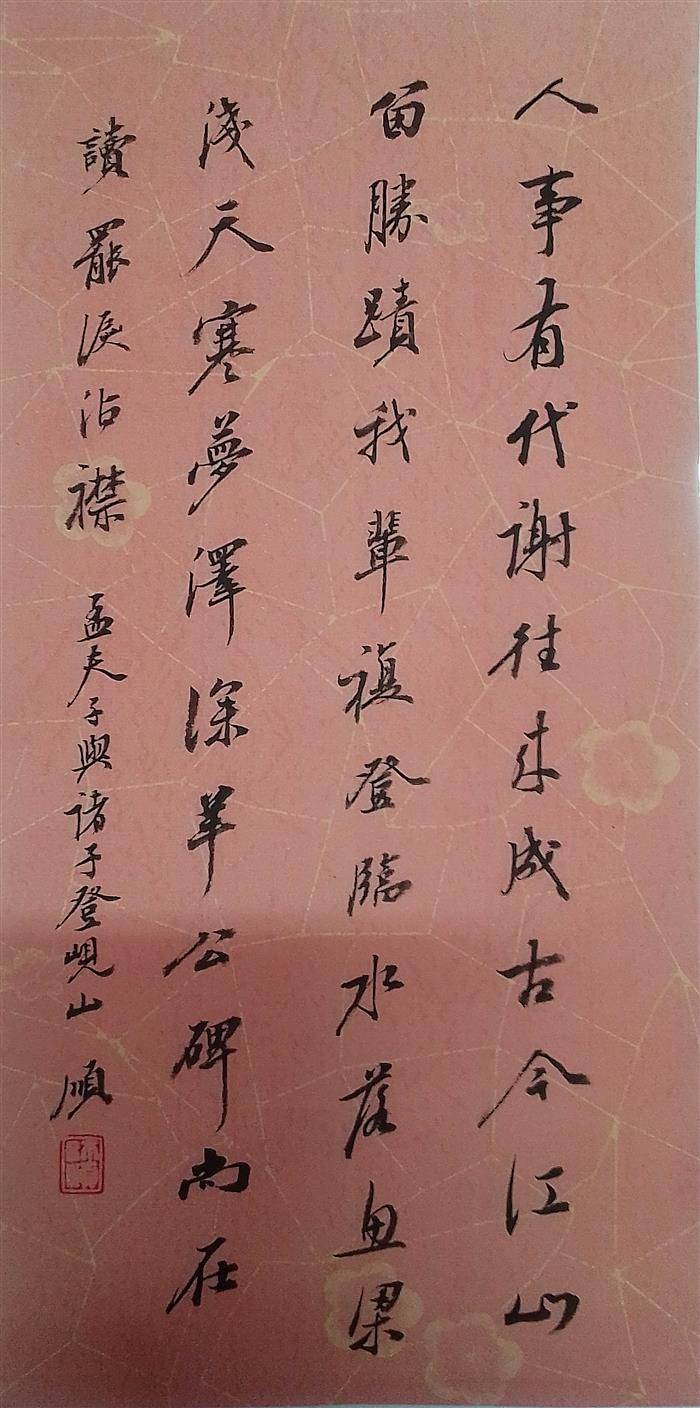 人事有代謝往来成古今江山
留勝蹟我輩復登臨水落魚梁
淺天寒夢澤深羊公碑尚在
讀罷淚沾襟 孟夫子與諸子登峴山 順